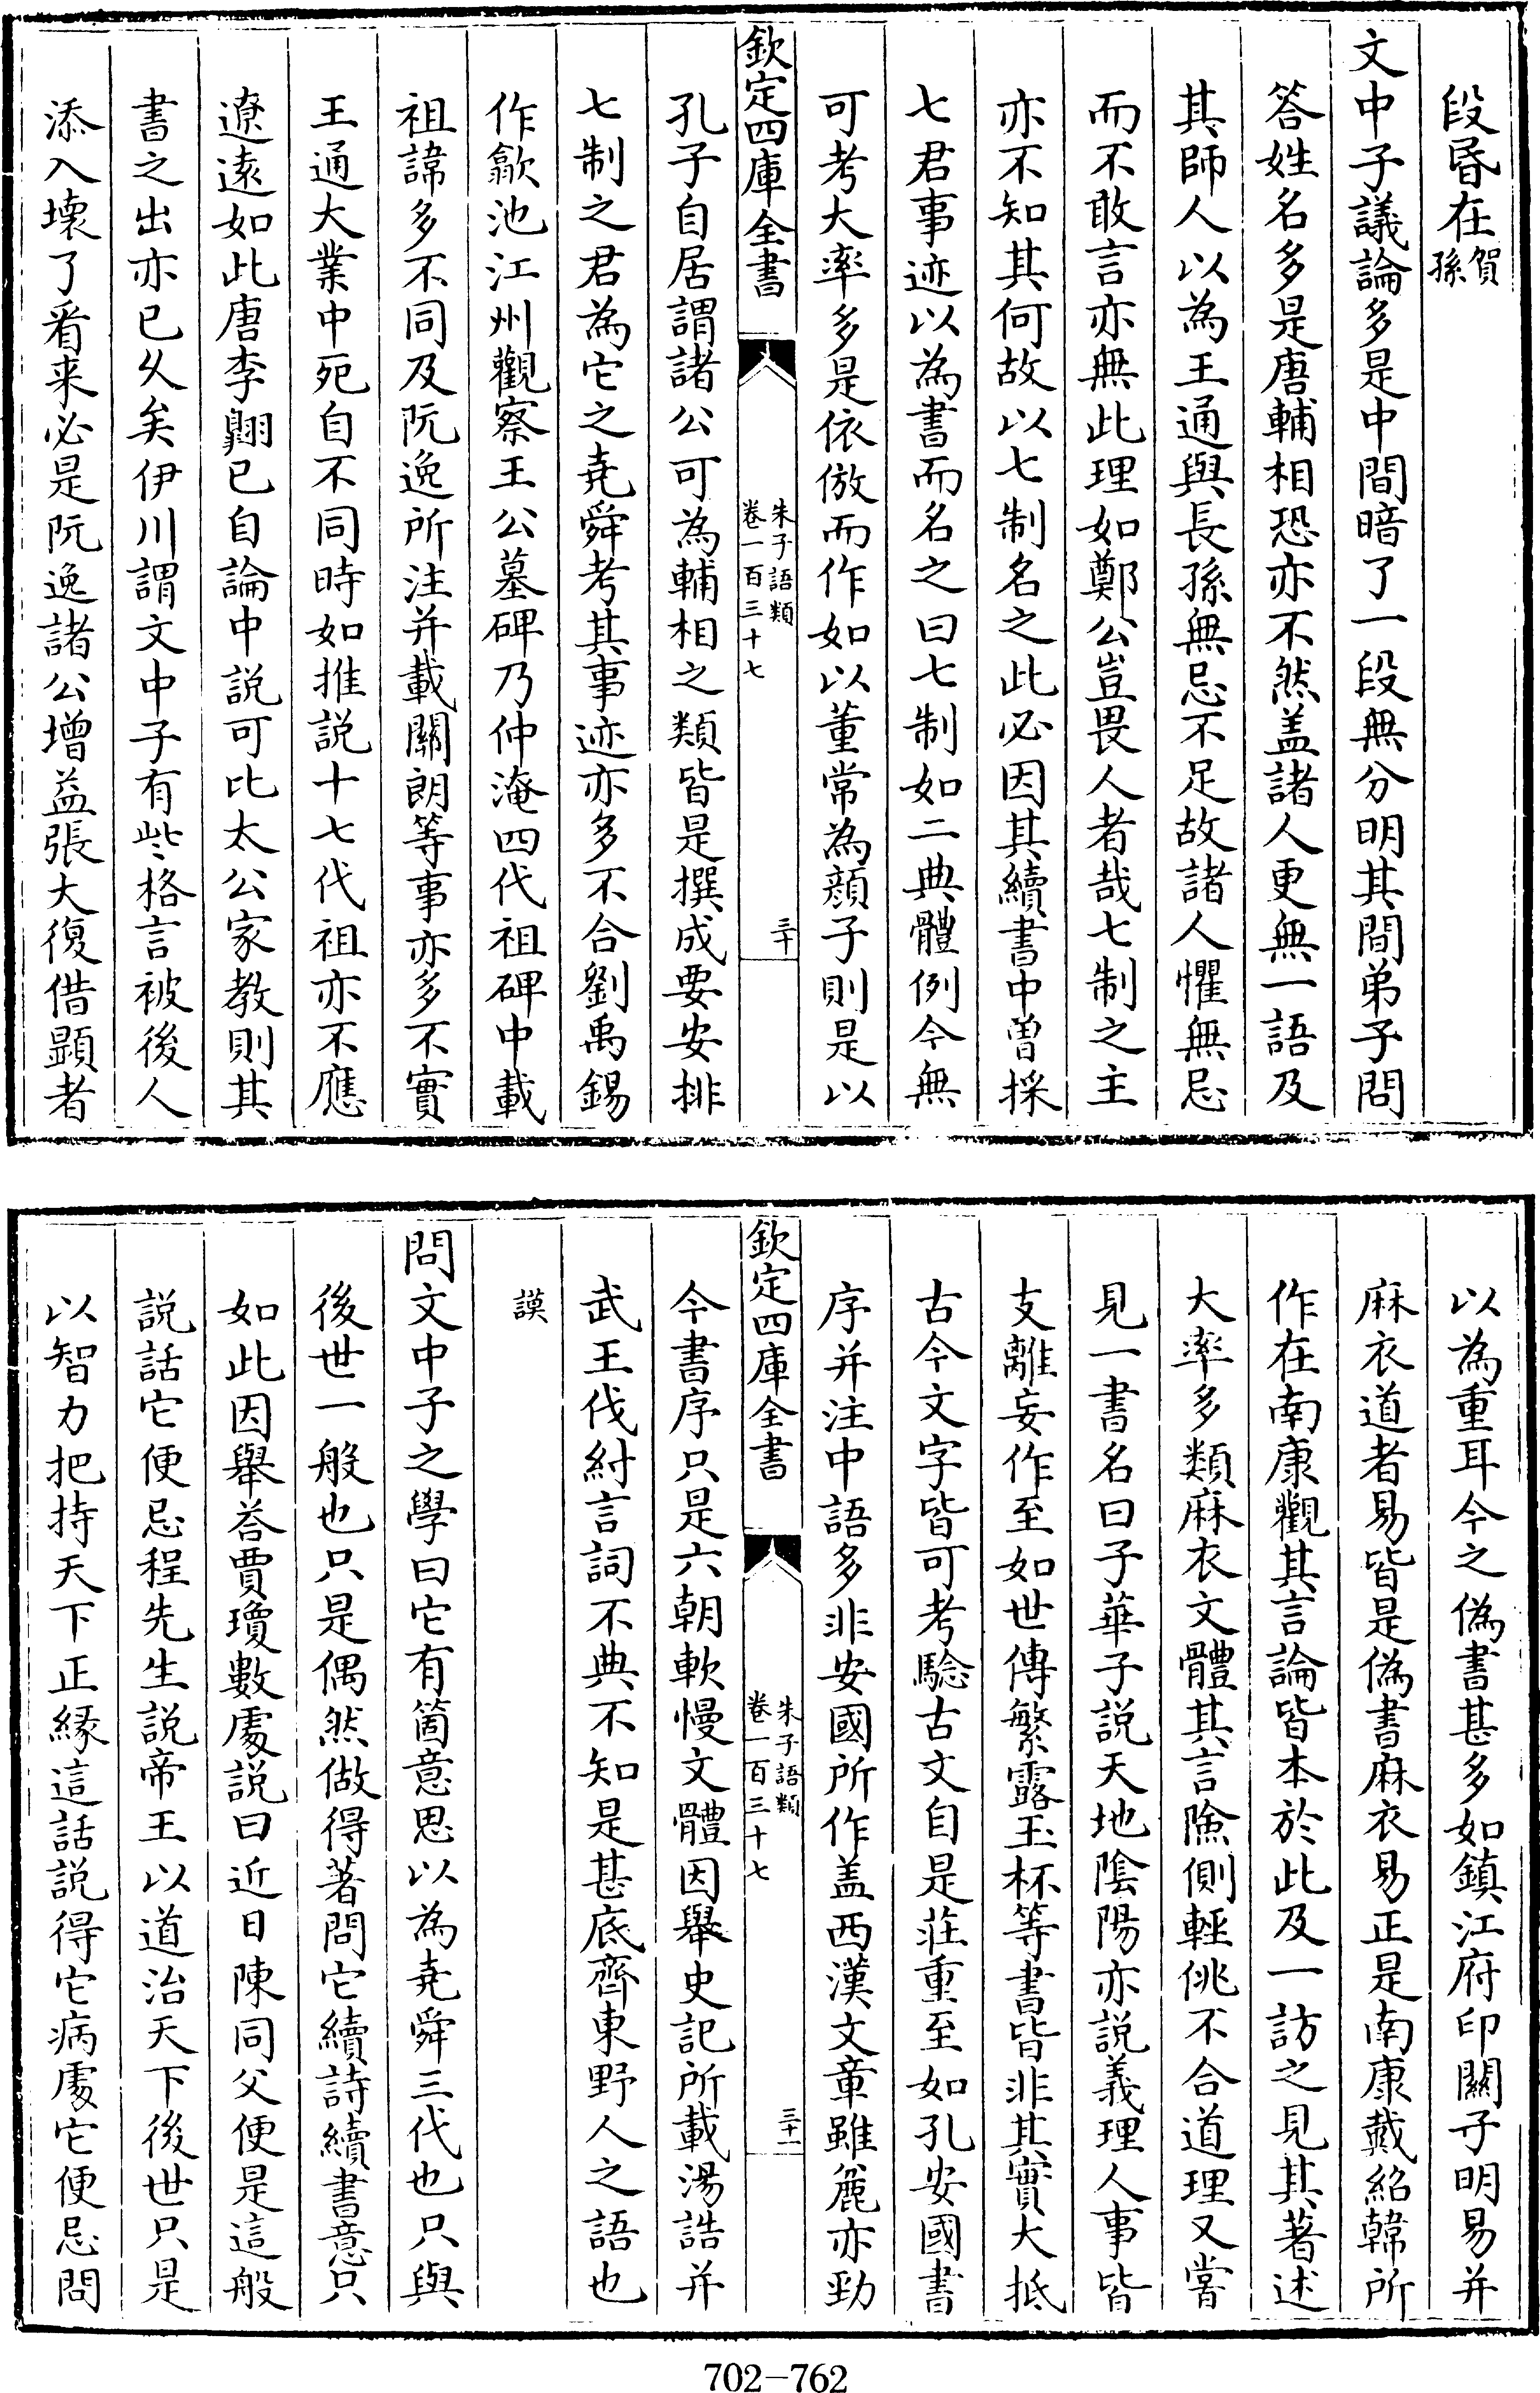 段昏在賀孫
文中子議論多是中間暗了一段無分明其間弟子問
答姓名多是唐輔相恐亦不然盖諸人更無一語及
其師人以為王通與長孫無忌不足故諸人懼無忌
而不敢言亦無此理如鄭公豈畏人者哉七制之主
亦不知其何故以七制名之此必因其續書中曽採
七君事迹以為書而名之曰七制如二典體例今無
可考大率多是依倣而作如以董常為顔子則是以
欽定四庫全書
朱子語類
卷一百三十七
三十
孔子自居謂諸公可為輔相之類皆是撰成要安排
七制之君為它之堯舜考其事迹亦多不合劉禹錫
作歙池江州觀察王公墓碑乃仲淹四代祖碑中載
祖諱多不同及阮逸所注并載關朗等事亦多不實
王通大業中死自不同時如推説十七代祖亦不應
遼遠如此唐李翺已自論中説可比太公家教則其
書之出亦已乆矣伊川謂文中子有些格言被後人
添入壞了看来必是阮逸諸公增益張大復借顯者
以為重耳今之偽書甚多如鎮江府印關子明易并
麻衣道者易皆是偽書麻衣易正是南康戴紹韓所
作在南康觀其言論皆本於此及一訪之見其著述
大率多類麻衣文體其言險側輕佻不合道理又嘗
見一書名曰子華子説天地陰陽亦説義理人事皆
支離妄作至如世傳繁露玉杯等書皆非其實大抵
古今文字皆可考驗古文自是莊重至如孔安國書
序并注中語多非安國所作盖西漢文章雖麄亦勁
欽定四庫全書
朱子語類
卷一百三十七
三十一
今書序只是六朝軟慢文體因舉史記所載湯誥并
武王伐紂言詞不典不知是甚底齊東野人之語也
謨
問文中子之學曰它有箇意思以為堯舜三代也只與
後世一般也只是偶然做得著問它續詩續書意只
如此因舉答賈瓊數處説曰近日陳同父便是這般
説話它便忌程先生説帝王以道治天下後世只是
以智力把持天下正緣這話説得它病處它便忌問
702-762